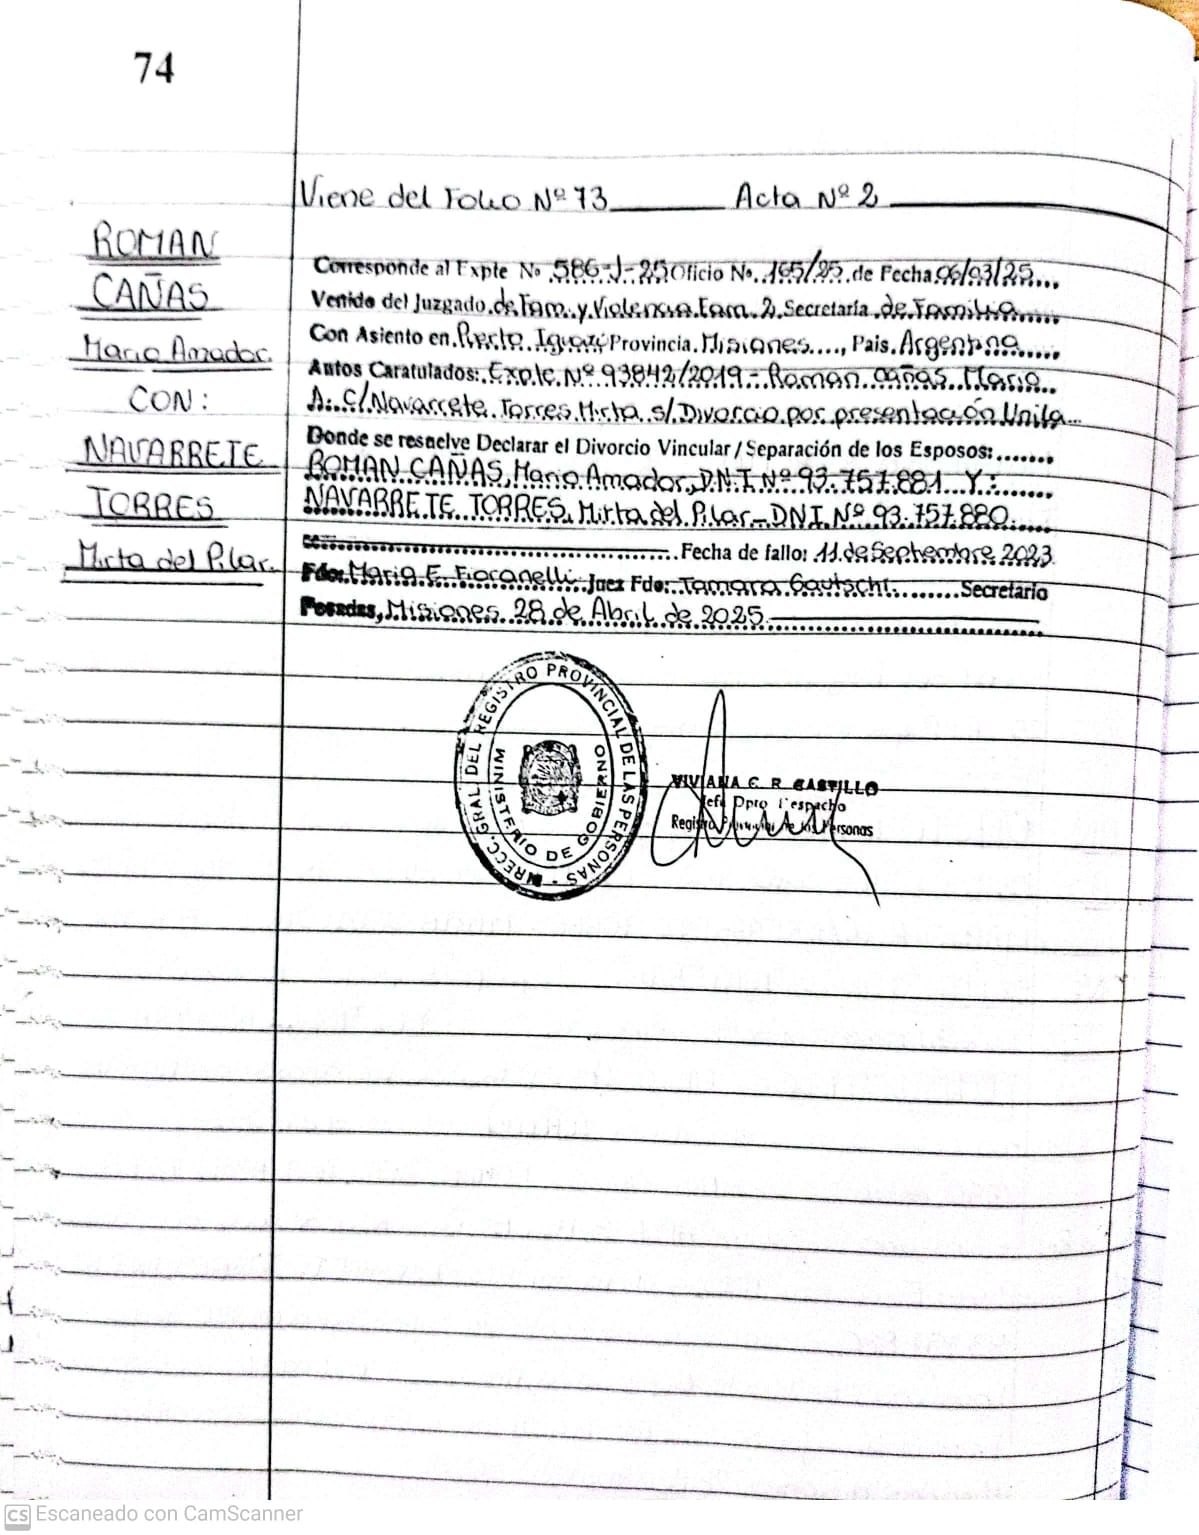 74
Viene del Folio Nº 73 Acta Nº 2
ROMAN
CAÑAS
Mario Amador.
CON:
NAVARRETE
TORRES
Mirta del Pilar.
Corresponde al Expte Nº 586-J-25 Oficio Nº 165/25 de Fecha 06/03/25
Venido del Juzgado de Fam. y Violencia Fam. 2 Secretaría de Familia
Con Asiento en Puerto Iguazú Provincia Misiones, Pais Argentina
Autos Caratulados: Expte. Nº 93842/2019 - Roman cañas Mario
A. C/ Navarrete Torres Mirta s/ Divorcio por presentación Unila
Donde se resuelve Declarar el Divorcio Vincular / Separación de los Esposos:
ROMAN CAÑAS, Mario Amador, D.N.I Nº 93.757.881 Y:
NAVARRETE TORRES, Mirta del Pilar - DNI Nº 93.757.880
Fecha de fallo: 11 de Septiembre 2023
Fdo: Maria E. Fioranelli Juez Fdo: Tamara Gautschi Secretario
Posadas, Misiones 28 de Abril de 2025
DIRECC. GRAL. DEL REGISTRO PROVINCIAL DE LAS PERSONAS -
MINISTERIO DE GOBIERNO
VIVIANA C. R. CASTILLO
Jefe Dpto Despacho
Registro Provincial de las Personas
CS Escaneado con CamScanner